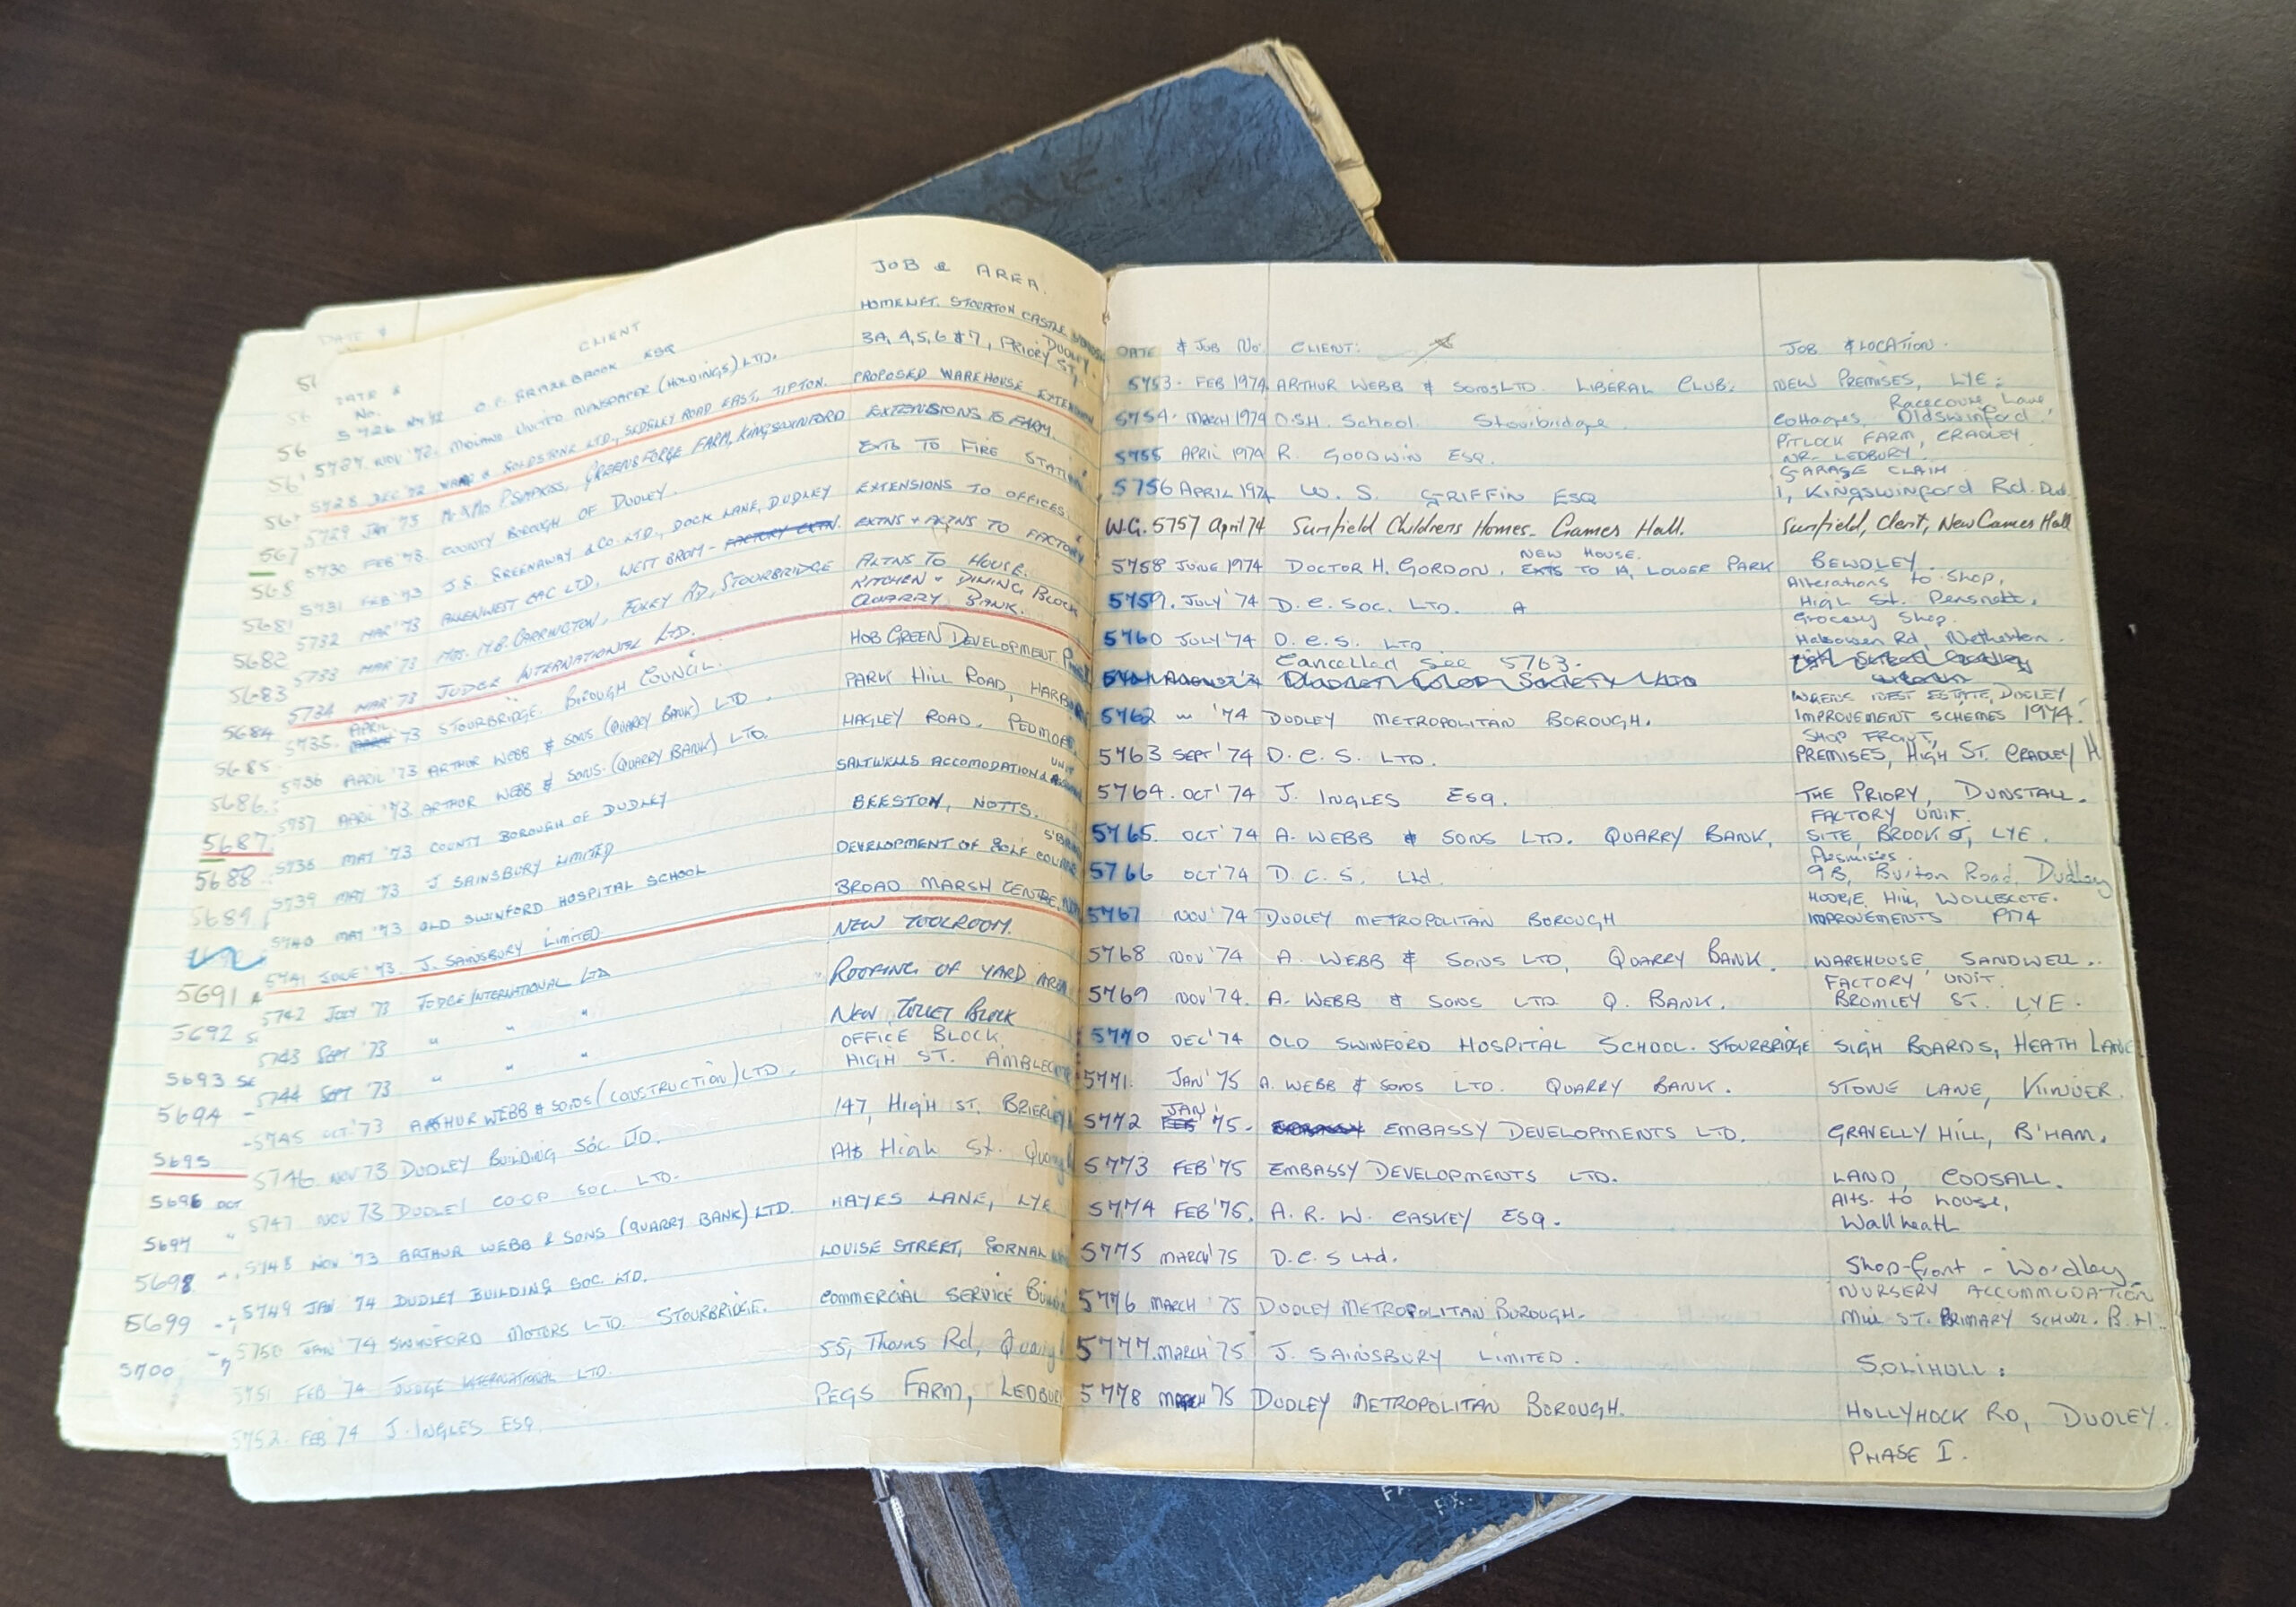 DATE &
CLIENT
JOB & AREA.
No.
5726 NOV '72 O.P. GRAZEBROOK ESQ HOMELFT. STOURTON CASTLE
5727 NOV '72. MIDLAND UNITED NEWSPAPER (HOLDINGS) LTD. 3A, 4, 5, 6 & 7, PRIORY ST, DUDLEY.
5728 DEC '72 WARD & GOLDSTONE LTD., SEDGLEY ROAD EAST, TIPTON. PROPOSED WAREHOUSE EXTENSION
5729 JAN '73 Mr & Mrs P SIMPKISS, GREENSFORGE FARM, KINGSWINFORD EXTENSIONS TO FARM.
5730 FEB '73. COUNTY BOROUGH OF DUDLEY. EXTS TO FIRE STATION
5731 FEB '73 J.S. GREENAWAY & CO. LTD., DOCK LANE, DUDLEY EXTENSIONS TO OFFICES.
5732 MAR '73 ALLENWEST GAC LTD, WEST BROM - FACTORY EXTN. EXTNS + ALTNS TO FACTORY
5733 MAR '73 MRS. M.B. CARRINGTON, FOLEY RD, STOURBRIDGE ALTNS TO HOUSE.
KITCHEN + DINING BLOCK
5734 MAR '73 JUDGE INTERNATIONAL LTD. QUARRY BANK.
5735. APRIL '73 STOURBRIDGE BOROUGH COUNCIL. HOB GREEN DEVELOPMENT
5736 APRIL '73 ARTHUR WEBB & SONS (QUARRY BANK) LTD. PARK HILL ROAD, HARBORNE
5737 APRIL '73 ARTHUR WEBB & SONS. (QUARRY BANK) LTD. HAGLEY ROAD, PEDMORE
5738 MAY '73 COUNTY BOROUGH OF DUDLEY SALTWELLS ACCOMODATION UNIT
5739 MAY '73 J SAINSBURY LIMITED BEESTON, NOTTS.
5740 MAY '73 OLD SWINFORD HOSPITAL SCHOOL DEVELOPMENT OF GOLF COURSE
5741 JUNE '73. J. SAINSBURY LIMITED. BROAD MARSH CENTRE,
5742 JULY '73 JUDGE INTERNATIONAL LTD NEW TOOLROOM.
5743 SEPT '73 " " ROOFING OF YARD AREA
5744 SEPT '73 " " NEW TOILET BLOCK
OFFICE BLOCK,
5745 OCT '73 ARTHUR WEBB & SONS (CONSTRUCTION) LTD. HIGH ST. AMBLECOTE
5746 NOV 73 DUDLEY BUILDING SOC. LTD. 147, HIGH ST. BRIERLEY
5747 NOV 73 DUDLEY CO-OP SOC. LTD. Alts High St. Quarry
5748 NOV '73 ARTHUR WEBB & SONS (QUARRY BANK) LTD. HAYES LANE, LYE
5749 JAN '74 DUDLEY BUILDING SOC. LTD. LOUISE STREET, GORNAL
5750 JAN '74 SWINFORD MOTORS LTD. STOURBRIDGE. COMMERCIAL SERVICE
5751 FEB '74 JUDGE INTERNATIONAL LTD. 55, Thorns Rd, Quarry
5752. FEB '74 J. INGLES ESQ PEGS FARM, LEDBURY
567
568
5681
5682
5683
5684
5685
5686.
5687
5688
5689
5691
5692
5693 SE
5694
5695
5696 OCT
5697
5698
5699
5700
DATE & JOB NO. CLIENT: JOB & LOCATION.
5753. FEB 1974 ARTHUR WEBB & SONS LTD. LIBERAL CLUB. NEW PREMISES, LYE.
Racecourse Lane
5754. MARCH 1974 O.S.H. School. Stourbridge Cottages, Oldswinford.
PITLOCK FARM, CRADLEY.
5755 APRIL 1974 R. GOODWIN ESQ. NR. LEDBURY.
GARAGE CLAIM
5756 APRIL 1974 W. S. GRIFFIN ESQ 1, KINGSWINFORD Rd. Dud.
W.G. 5757 April 74 Sunfield Childrens Homes. Games Hall. Sunfield, Clent, New Games Hall
NEW HOUSE.
5758 JUNE 1974 DOCTOR H. GORDON, EXTS TO 19, LOWER PARK BEWDLEY.
Alterations to shop,
5759. JULY '74 D.C. SOC. LTD. A High St. Pensnett.
Grocery Shop.
5760 JULY '74 D.C.S. LTD Halesowen Rd, Netherton.
Cancelled see 5763.
WRENS NEST ESTATE, DUDLEY
5762 " '74 DUDLEY METROPOLITAN BOROUGH. IMPROVEMENT SCHEMES 1974.
SHOP FRONT,
5763 SEPT '74 D.C.S. LTD. PREMISES, HIGH ST. CRADLEY H
5764. OCT '74 J. INGLES ESQ. THE PRIORY, DUNSTALL.
FACTORY UNIT.
5765. OCT '74 A. WEBB & SONS LTD. QUARRY BANK, SITE, BROOK ST, LYE.
Premises.
5766 OCT '74 D.C.S. Ltd. 98, Buxton Road, Dudley
HODGE HILL, WOLLESCOTE.
5767 NOV '74 DUDLEY METROPOLITAN BOROUGH IMPROVEMENTS 1974
5768 NOV '74 A. WEBB & SONS LTD, QUARRY BANK. WAREHOUSE, SANDWELL..
FACTORY UNIT.
5769 NOV '74. A. WEBB & SONS LTD. Q. BANK. BROMLEY ST. LYE.
5770 DEC '74 OLD SWINFORD HOSPITAL SCHOOL. STOURBRIDGE SIGH BOARDS, HEATH LANE
5771. JAN '75 A. WEBB & SONS LTD. QUARRY BANK. STONE LANE, KINVER.
JAN
5772 FEB '75. EMBASSY EMBASSY DEVELOPMENTS LTD. GRAVELLY HILL, B'HAM.
5773 FEB '75 EMBASSY DEVELOPMENTS LTD. LAND, CODSALL.
Alts. to house,
5774 FEB '75. A. R. W. CASKEY ESQ. Wallheath
5775 MARCH '75 D.C.S Ltd. Shop-front - Wordley
NURSERY ACCOMMODATION
5776 MARCH '75 DUDLEY METROPOLITAN BOROUGH. Mill ST. PRIMARY SCHOOL. B.H.
5777. MARCH '75 J. SAINSBURY LIMITED. SOLIHULL.
5778 MARCH '75 DUDLEY METROPOLITAN BOROUGH. HOLLYHOCK RD, DUDLEY.
PHASE I.